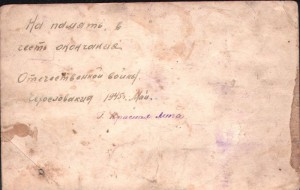 На память, в
честь окончания
Отечественной войны
Чехословакия 1945г. Май.